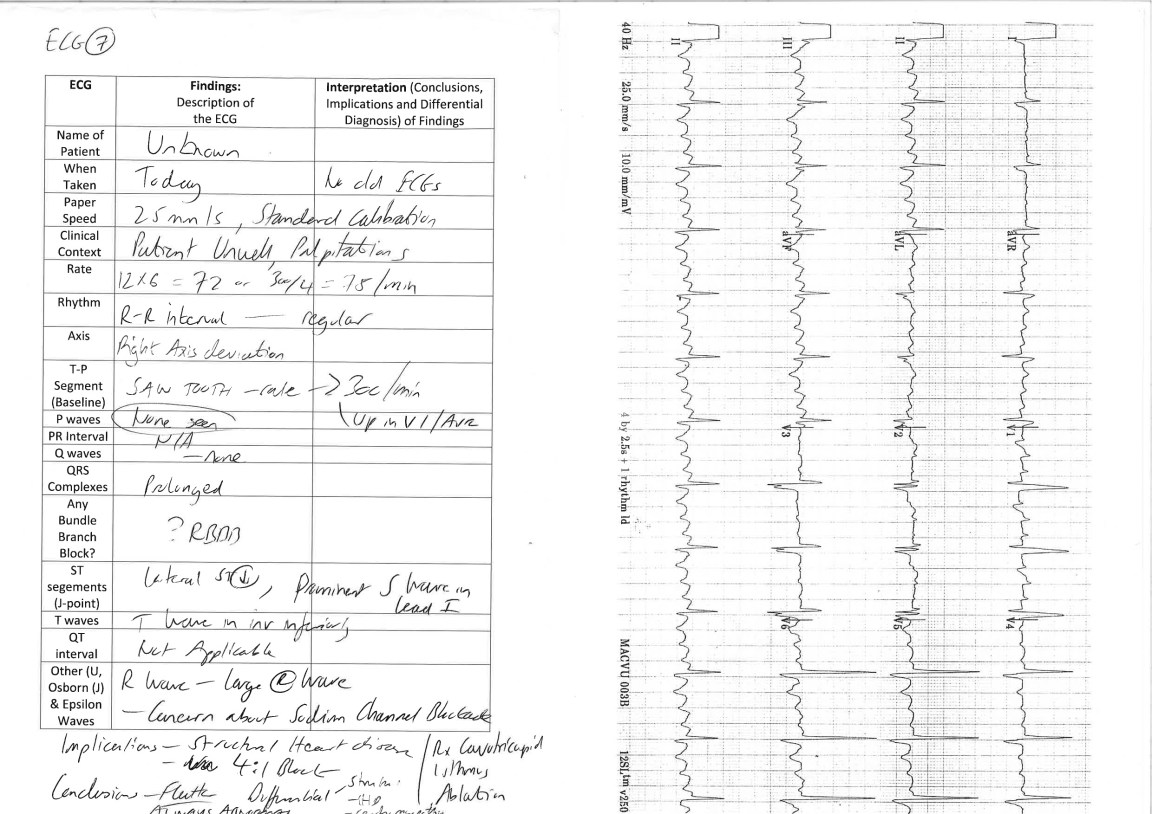 ECG 7
ECG
Findings:
Description of
the ECG
Interpretation (Conclusions,
Implications and Differential
Diagnosis) of Findings
Name of
Patient
Unknown
When
Taken
Today
No old ECGs
Paper
Speed
25mm/s, Standard Calibration
Clinical
Context
Patient Unwell, Palpitations
Rate
12x6 = 72 or 300/4 = 75/min
Rhythm
R-R interval — regular
Axis
Right Axis deviation
T-P
Segment
(Baseline)
SAW TOOTH - rate -> 300/min
P waves
None seen
Up in V1/AVR
PR Interval
N/A
Q waves
- None
QRS
Complexes
Prolonged
Any
Bundle
Branch
Block?
? RBBB
ST
segements
(J-point)
Lateral ST ↓, Prominent S wave in
lead I
T waves
T wave in inv inferiorly
QT
interval
Not Applicable
Other (U,
Osborn (J)
& Epsilon
Waves
R Wave - Large R wave
- Concern about Sodium Channel Blockade
Implications - Structural Heart disease
- 4:1 Block
Rx Cavotricuspid
Isthmus
Ablation
Conclusion - Flutter
Differential
- IHD
40 Hz
25.0 mm/s
10.0 mm/mV
4 by 2.5s + 1 rhythm ld
MACVU 003B
12SLtm v250
II
III
II
I
aVF
aVL
aVR
V3
V2
V1
V6
V5
V4